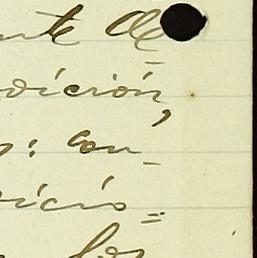 nte de
dición,
: con_
icio=
los